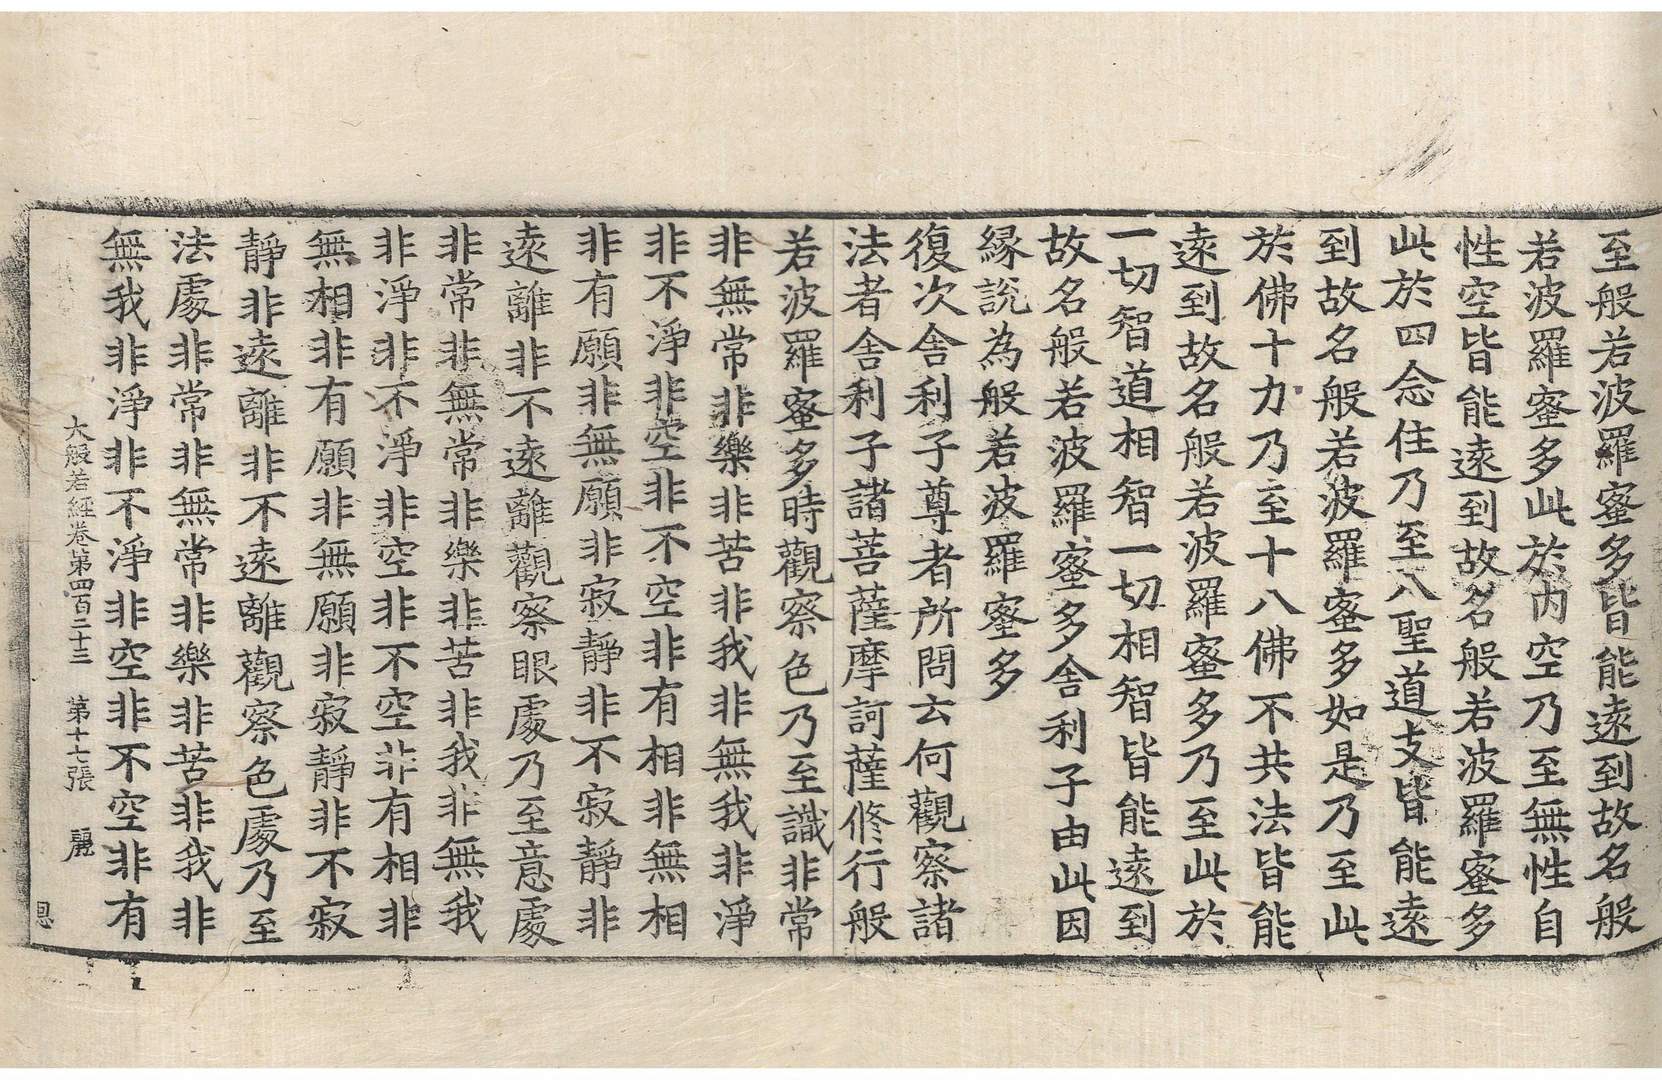 至般若波羅蜜多皆能遠到故名般
若波羅蜜多此於內空乃至無性自
性空皆能遠到故名般若波羅蜜多
此於四念住乃至八聖道支皆能遠
到故名般若波羅蜜多如是乃至此
於佛十力乃至十八佛不共法皆能
遠到故名般若波羅蜜多乃至此於
一切智道相智一切相智皆能遠到
故名般若波羅蜜多舍利子由此因
緣說為般若波羅蜜多
復次舍利子尊者所問云何觀察諸
法者舍利子諸菩薩摩訶薩修行般
若波羅蜜多時觀察色乃至識非常
非無常非樂非苦非我非無我非淨
非不淨非空非不空非有相非無相
非有願非無願非寂靜非不寂靜非
遠離非不遠離觀察眼處乃至意處
非常非無常非樂非苦非我非無我
非淨非不淨非空非不空非有相非
無相非有願非無願非寂靜非不寂
靜非遠離非不遠離觀察色處乃至
法處非常非無常非樂非苦非我非
無我非淨非不淨非空非不空非有
大般若經卷第四百二十三 第十七張 麗
恩